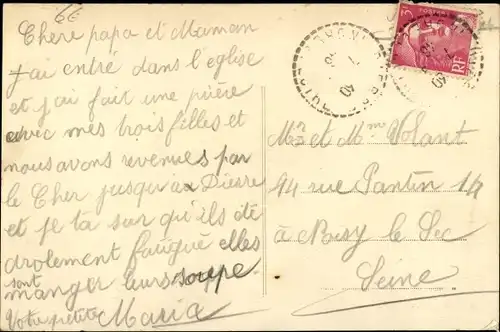 6€
Chere papa et Maman
J'ai entré dans l'église
et j'ai fait une prière
avec mes trois filles et
nous avons revenues par
le Cher jusqu'a Dierre
et je ta sur qu'ils été
drolement fatigué elles
sont
manger leurs soupe
Votre petite Maria
Mr et Mme Volant
44 rue Pantin 14
à Noisy le Sec
Seine
3F
POSTES
RF